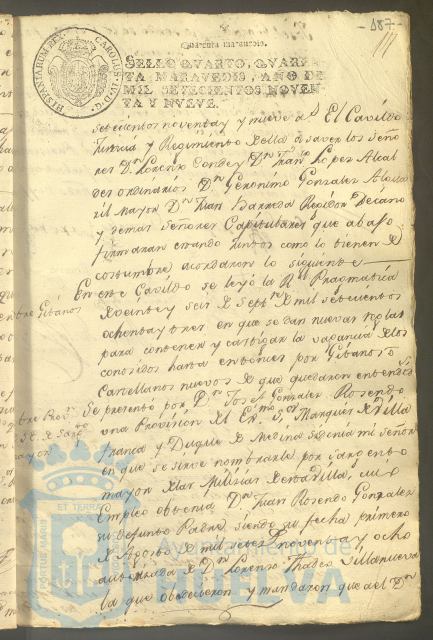 -187-
Quarenta maravedis.
SELLO QVARTO, QVAREN
TA MARAVEDIS, AÑO DE
MIL SETECIENTOS NOVEN
TA Y NVEVE.
HISPANIARUM REX CAROLUS IV D G
setecientos noventa y nueve a.s El Cavildo
Justicia y Regimiento de ella a saver los seño
res Dn Lorenzo Conde y Dn Fran.co Lopez Alcal
des ordinarios Dn Geronimo Gonzalez Alguа
zil mayor Dn Juan Barreda Regidor Decano
y demas señores Capitulares que abajo
firmaran estando juntos como lo tienen de
costumbre acordaron lo siguiente
En este Cavildo se leyó la Rl Pragmatica
de veinte y seis de Septre de mil setecientos
ochenta y tres en que se dan nuevas reglas
para contener y castigar la vagancia de los
conocidos hasta entonces por Gitanos o
Castellanos nuevos de que quedaron entendidos
sobre Gitanos
Se presentó por Dn Josef Gonzalez Rosendo
una Provision del Exmo Sor Marques de Villa
franca y Duque de Medina Sidonia mi señor
en que se sirve nombrarle por sargento
mayor de las Milicias de esta Villa, cuio
Empleo obtenia Dn Juan Rosendo Gonzalez
su defunto Padre, siendo su fecha primero
de Agosto de mil setez noventa y ocho
autorizada de Dn Lorenzo Thadeo Villanueva
la que obedecieron y mandaron que a el Dn
PORTUS MARIS ET TERRAE CUSTODIA
Ayuntamiento de
HUELVA